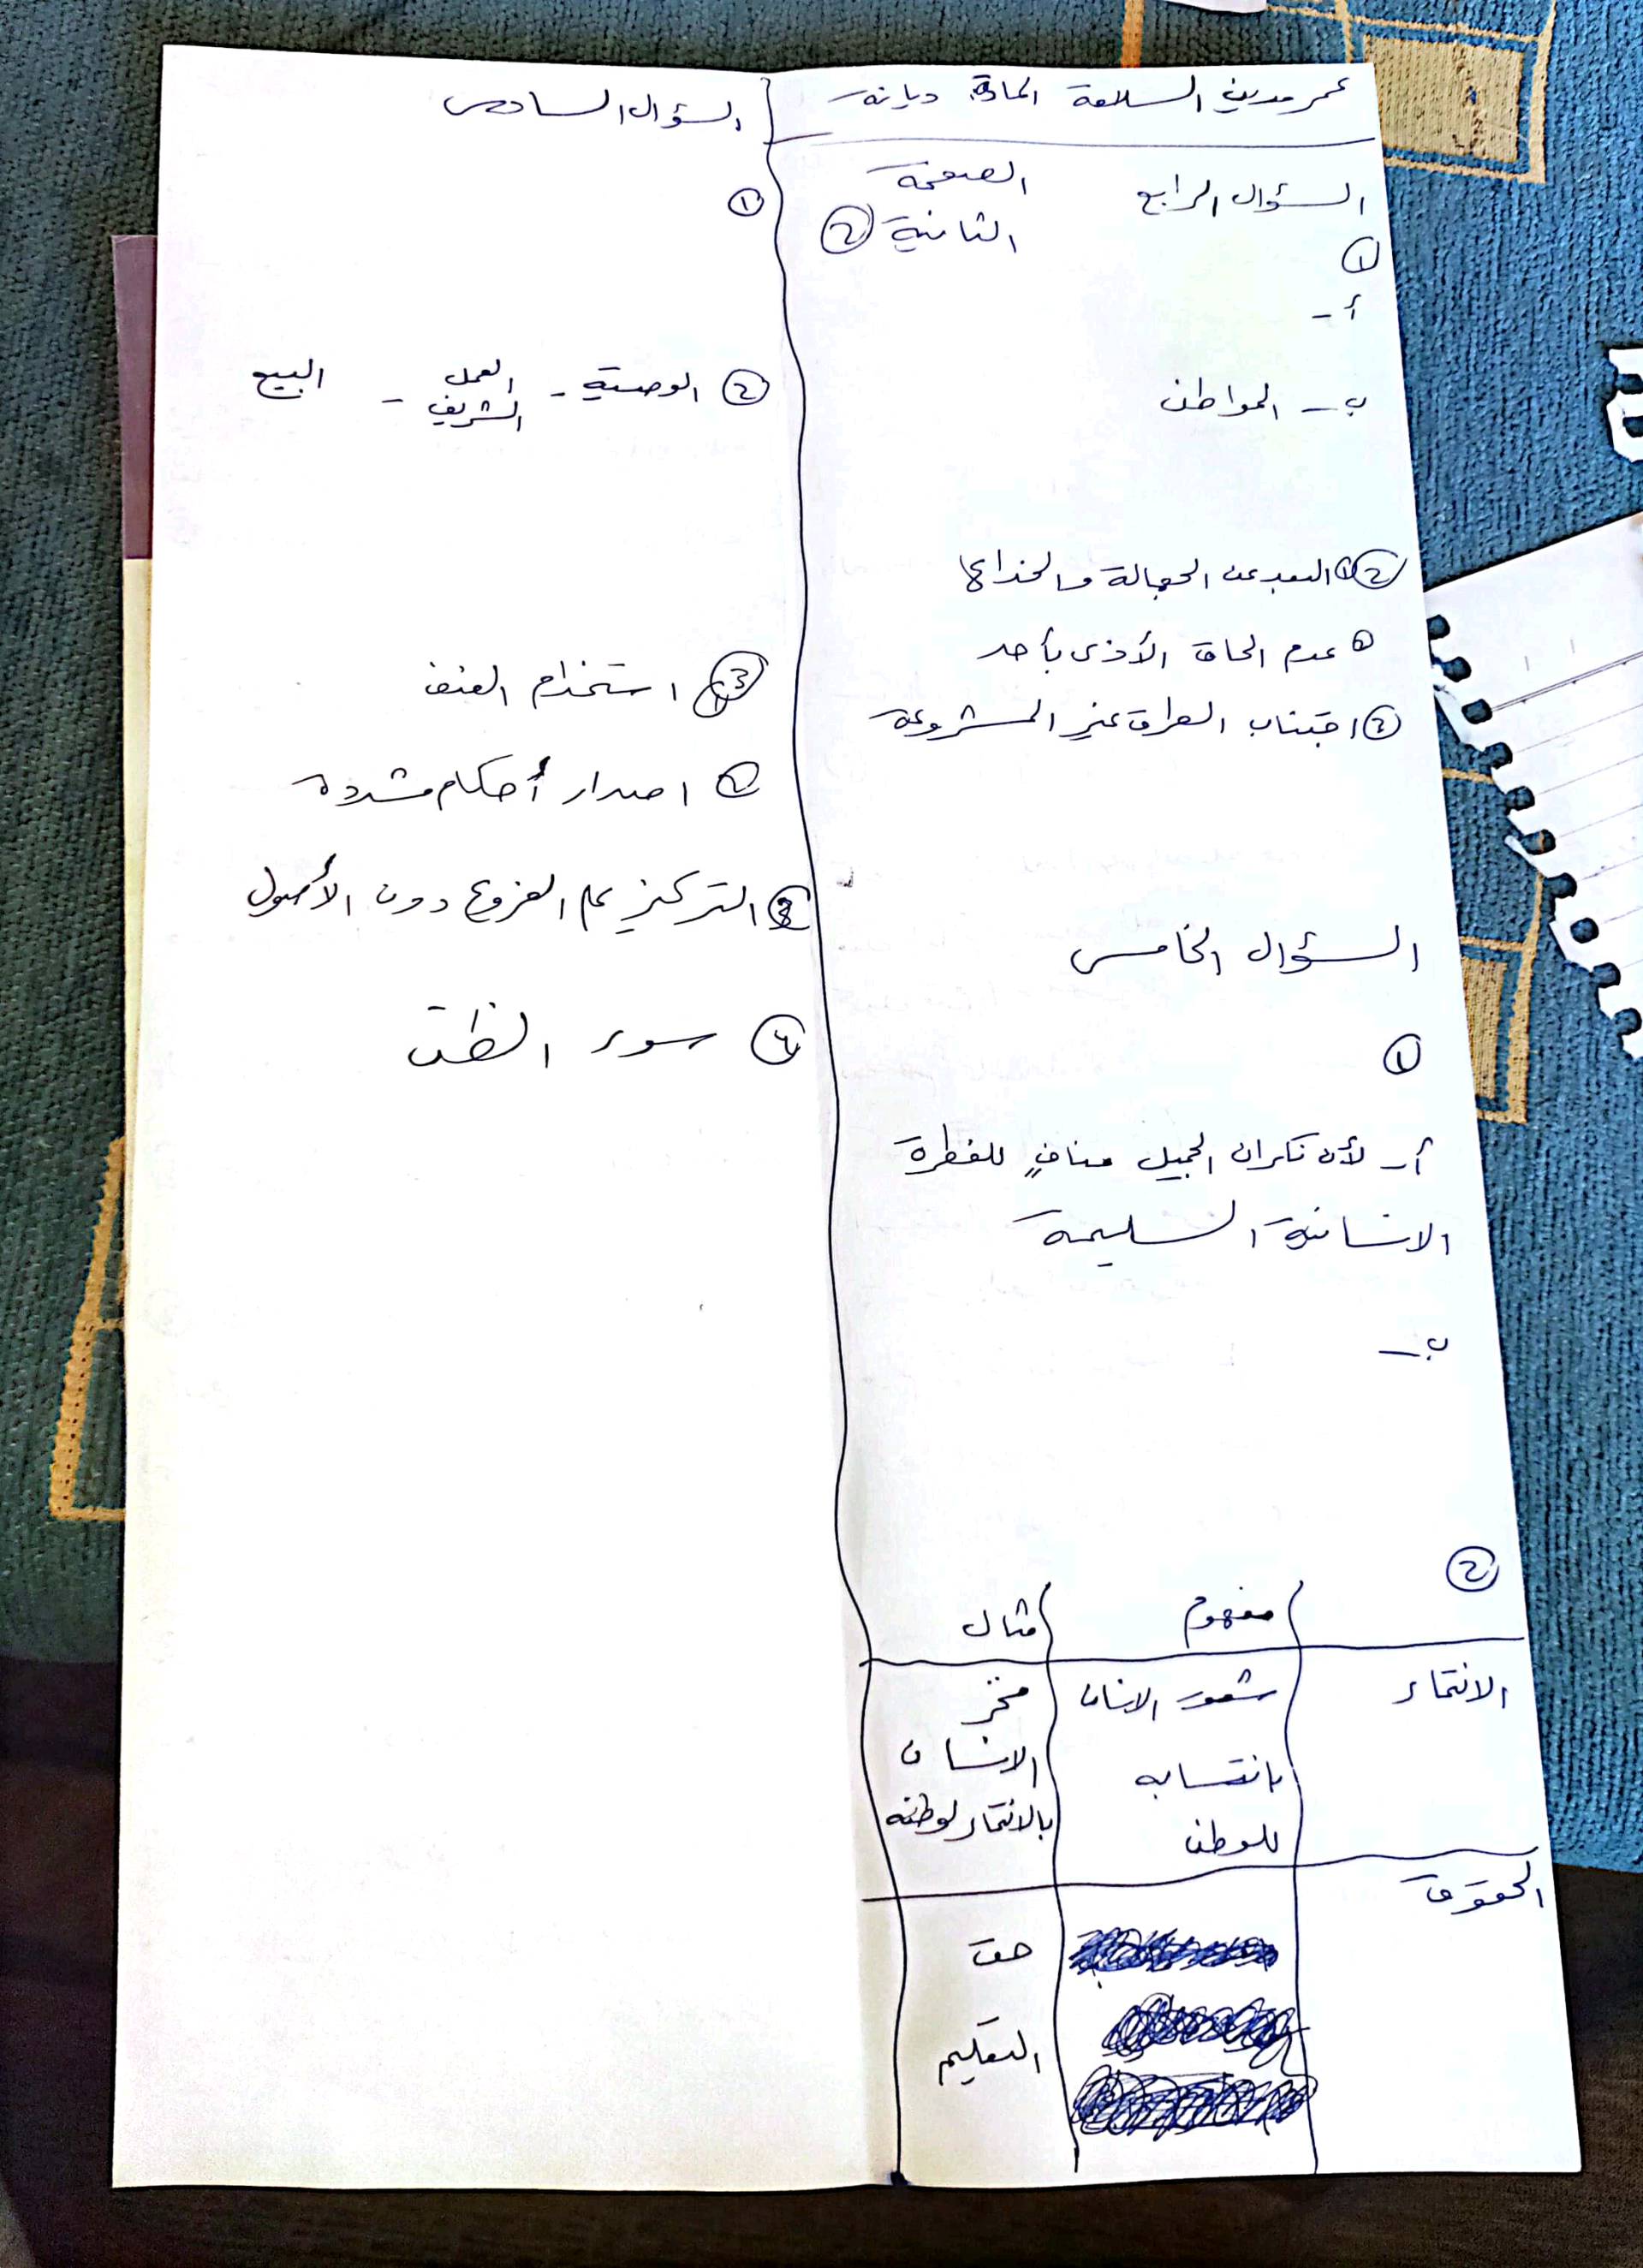 عمر مدين السلامة المادة ديانة
السؤال الرابع
الصفحة
الثانية ②
①
أ -
ب - المواطن
② ① البعد عن الجهالة والخداع
② عدم الحاق الأذى بأحد
③ اجتناب الطرق غير المشروعة
السؤال الخامس
①
أ - لأن نكران الجميل منافٍ للفطرة
الانسانية السليمة
ب -
②
مفهوم مثال
الانتماء شعور الانسان فخر
بانتسابه الانسان
للوطن بالانتماء لوطنه
الحقوق
حق
التعليم
السؤال السادس
①
② الوصية - العمل الشريف - البيع
③ ① استخدام العنف
② اصدار أحكام مشددة
③ التركيز على الفروع دون الأصول
④ سوء الظن